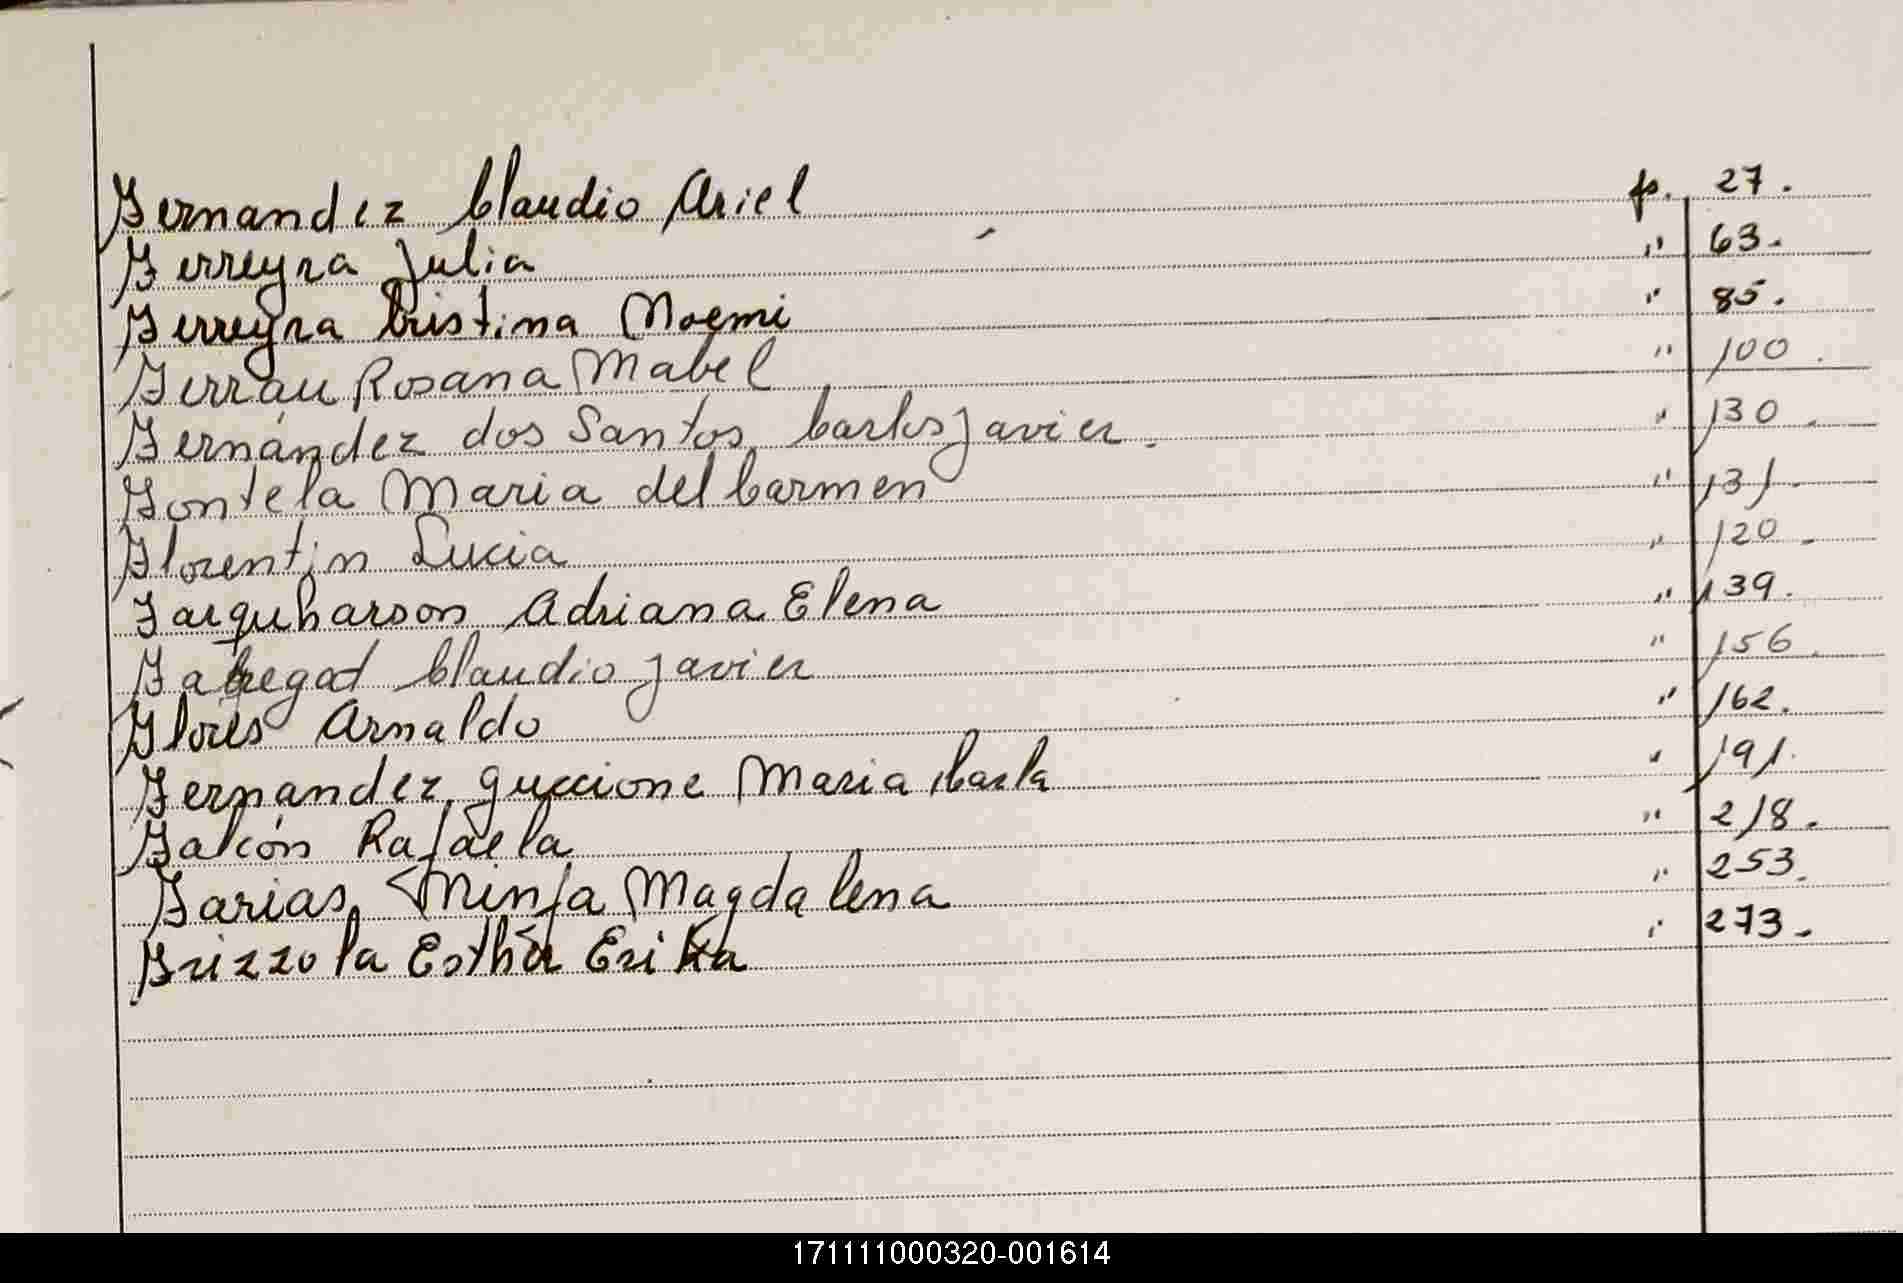 Fernandez Claudio Ariel p. 27.
Ferreyra Julia " 63.
Ferreyra Cristina Noemi " 85.
Ferrau Rosana Mabel " 100.
Fernández dos Santos, Carlos Javier. " 130.
Fontela Maria del Carmen " 131.
Florentin Lucia " 120.
Farquharson Adriana Elena " 139.
Fabregat Claudio Javier " 156.
Flores Arnaldo " 162.
Fernandez, Guccione Maria Carla " 191.
Falcón Rafaela " 218.
Farias, Ninfa Magdalena " 253.
Frizzola Esther Erika " 273.
171111000320-001614